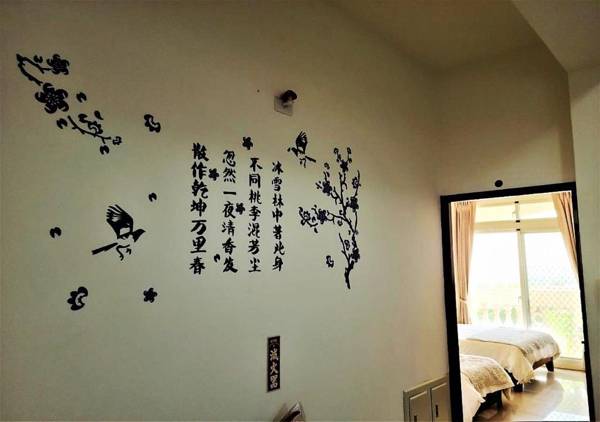 冰雪林中著此身
不同桃李混芳尘
忽然一夜清香发
散作乾坤万里春
滅火器